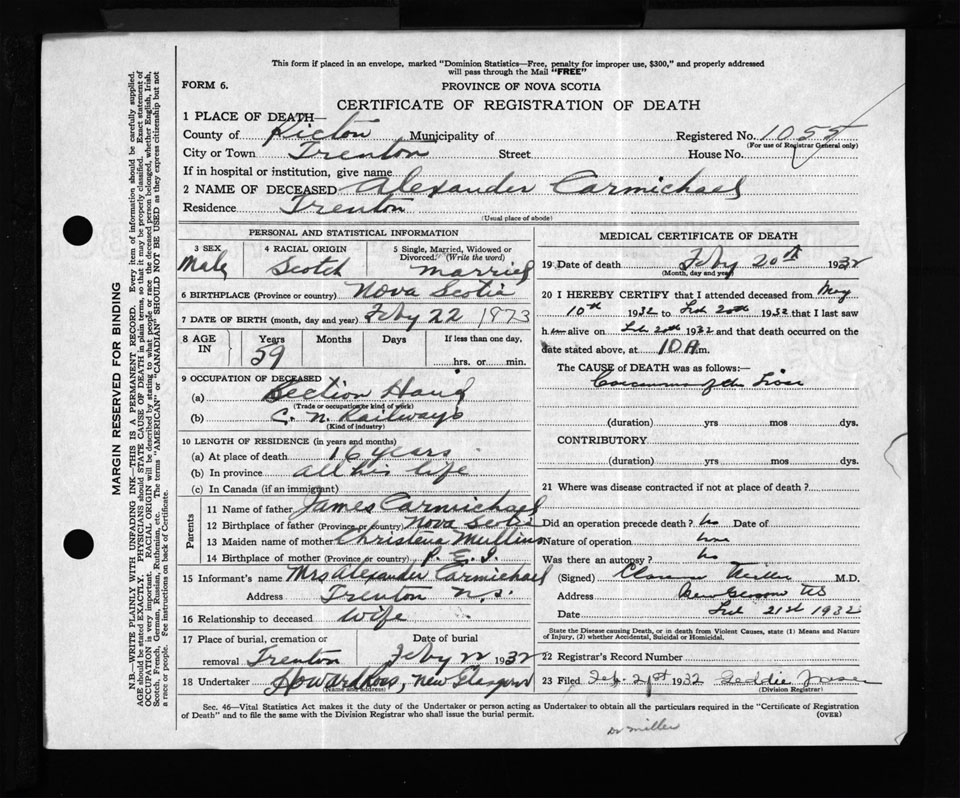 This form if placed in an envelope, marked "Dominion Statistics—Free, penalty for improper use, $300," and properly addressed
will pass through the Mail "FREE"
FORM 6.
PROVINCE OF NOVA SCOTIA
CERTIFICATE OF REGISTRATION OF DEATH
1 PLACE OF DEATH—
County of Pictou Municipality of Registered No. 1055
(For use of Registrar General only)
City or Town Trenton Street House No.
If in hospital or institution, give name
2 NAME OF DECEASED Alexander Carmichael
Residence Trenton
(Usual place of abode)
PERSONAL AND STATISTICAL INFORMATION
3 SEX 4 RACIAL ORIGIN 5 Single, Married, Widowed or
Divorced. (Write the word)
Male Scotch married
6 BIRTHPLACE (Province or country) Nova Scotia
7 DATE OF BIRTH (month, day and year) Feby 22 1873
8 AGE IN Years Months Days If less than one day,
59 hrs. or min.
9 OCCUPATION OF DECEASED
(a) Section Hand
(Trade or occupation or kind of work)
(b) C. N. Railways
(Kind of industry)
10 LENGTH OF RESIDENCE (in years and months)
(a) At place of death 16 years
(b) In province all his life
(c) In Canada (if an immigrant)
Parents
11 Name of father James Carmichael
12 Birthplace of father (Province or country) Nova Scotia
13 Maiden name of mother Christena Mullins
14 Birthplace of mother (Province or country) P. E. I.
15 Informant's name Mrs Alexander Carmichael
Address Trenton N.S.
16 Relationship to deceased Wife
17 Place of burial, cremation or Date of burial
removal Trenton Feby 22 1932
18 Undertaker Howard Ross, New Glasgow
(Name and address)
MEDICAL CERTIFICATE OF DEATH
19 Date of death Feby 20th 1932
(Month, day and year)
20 I HEREBY CERTIFY that I attended deceased from May
10th 1932 to Feb 20th 1932 that I last saw
him alive on Feb 20th 1932 and that death occurred on the
date stated above, at 10 A m.
The CAUSE of DEATH was as follows:—
Carcinoma of the Liver
(duration) yrs mos dys.
CONTRIBUTORY
(duration) yrs mos dys.
21 Where was disease contracted if not at place of death?
Did an operation precede death? no Date of
Nature of operation none
Was there an autopsy? no
(Signed) Clarence Miller M.D.
Address New Glasgow NS
Date Feb 21st 1932
State the Disease causing Death, or in death from Violent Causes, state (1) Means and Nature
of Injury, (2) whether Accidental, Suicidal or Homicidal.
22 Registrar's Record Number
23 Filed Feb. 21st 1932 Geddie
(Division Registrar)
Sec. 46—Vital Statistics Act makes it the duty of the Undertaker or person acting as Undertaker to obtain all the particulars required in the "Certificate of Registration
of Death" and to file the same with the Division Registrar who shall issue the burial permit. (OVER)
Dr miller
MARGIN RESERVED FOR BINDING
N.B.—WRITE PLAINLY WITH UNFADING INK—THIS IS A PERMANENT RECORD. Every item of information should be carefully supplied.
AGE should be stated EXACTLY. PHYSICIANS should STATE CAUSE OF DEATH in plain terms, so that it may be properly classified. Exact statement of
OCCUPATION is very important. RACIAL ORIGIN will be described by stating to what people or race the deceased person belonged, whether English, Irish,
Scotch, French, German, Russian, Ruthenian, etc. The terms "AMERICAN" or "CANADIAN" SHOULD NOT BE USED as they express citizenship but not
a race or people. Fee instructions on back of Certificate.